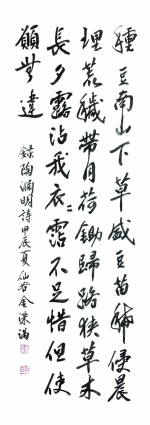 種豆南山下草盛豆苗稀侵晨
理荒穢帶月荷鋤歸路狹草木
長夕露沾我衣〻霑不足惜但使
願無違
錄陶淵明詩甲辰夏仙谷金